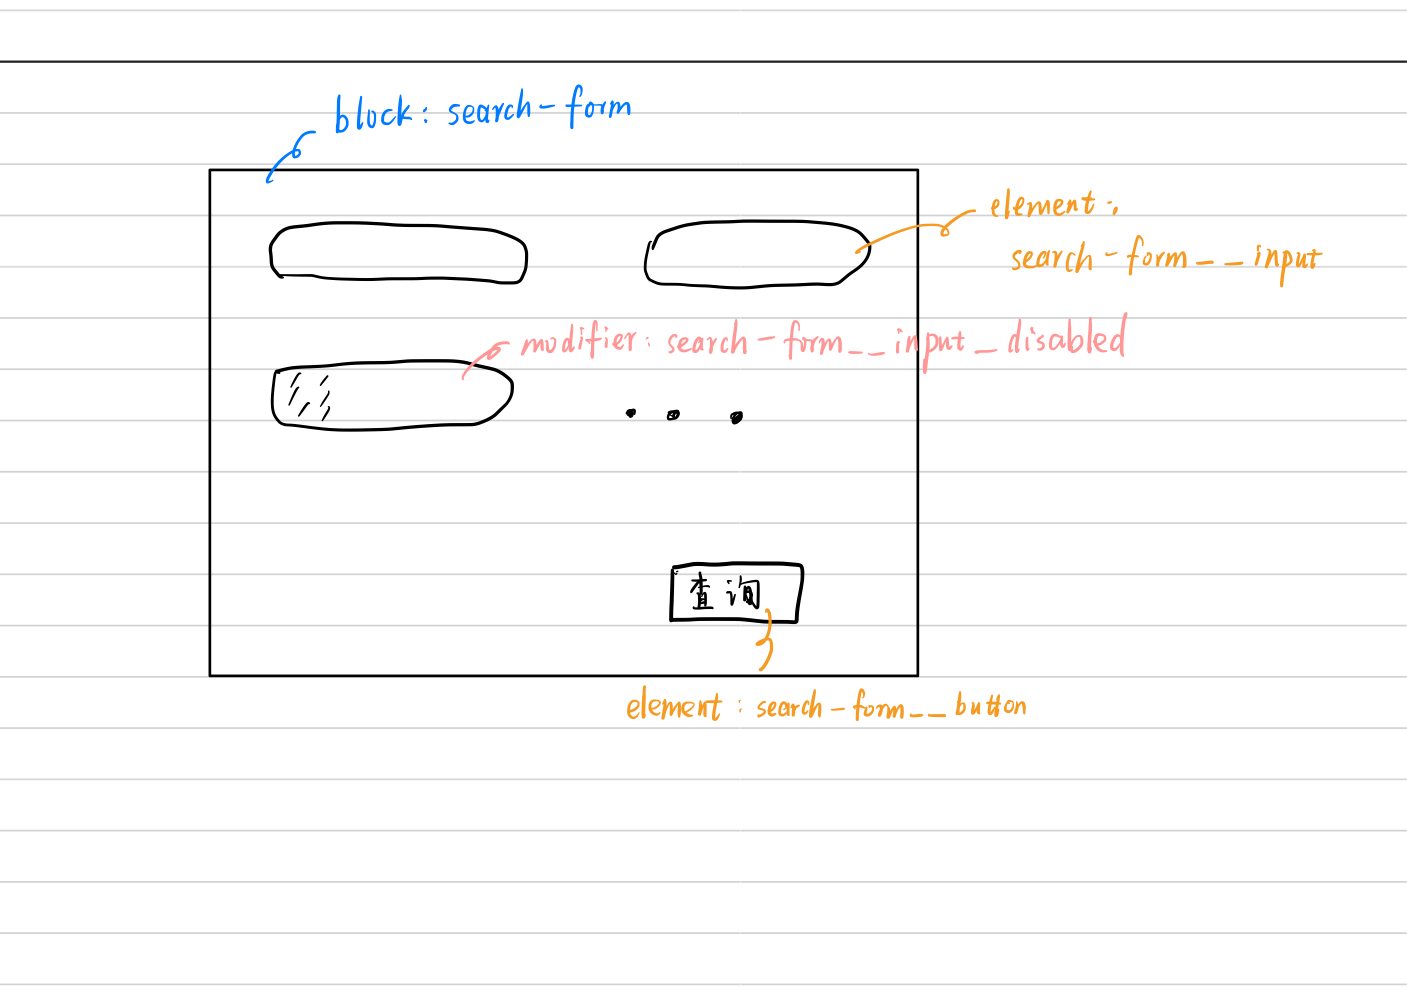 block: search-form
element:
search-form__input
modifier: search-form__input_disabled
查询
element: search-form__button